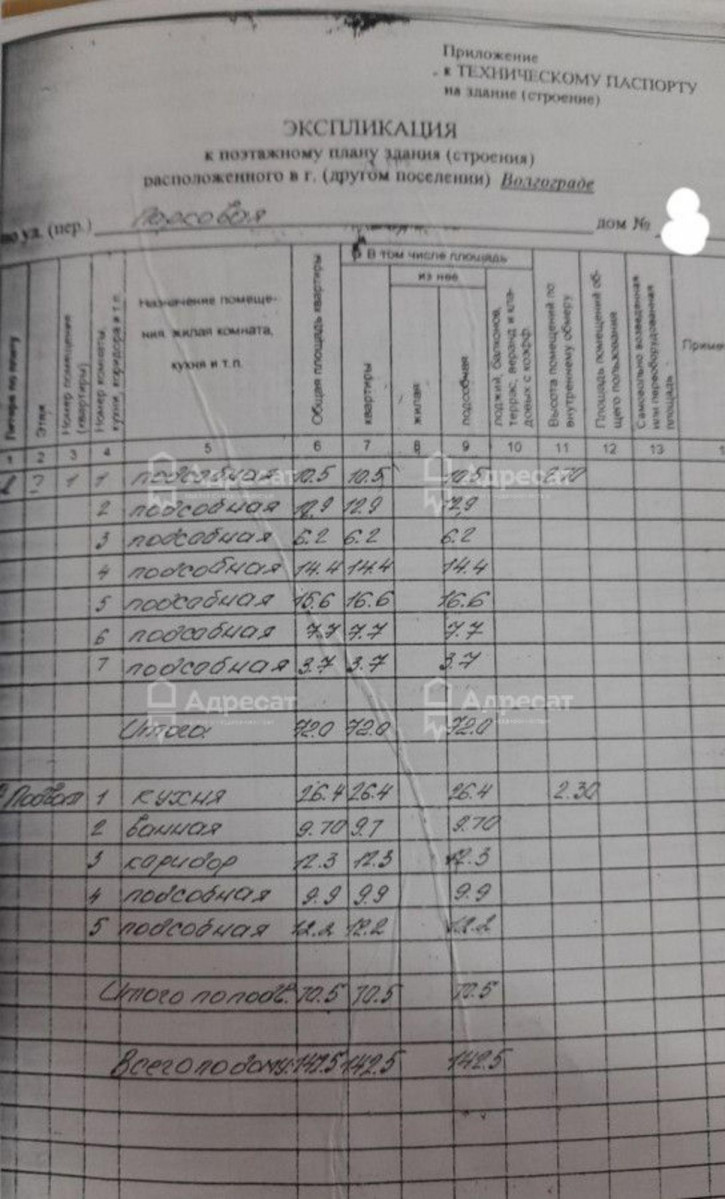 Приложение
к ТЕХНИЧЕСКОМУ ПАСПОРТУ
на здание (строение)
ЭКСПЛИКАЦИЯ
к поэтажному плану здания (строения)
расположенного в г. (другом поселении) Волгограде
по ул. (пер.) Парковая дом №
Литера по плану
Этаж
Номер помещения (квартиры)
Номер комнаты, кухни, коридора и т.п.
Назначение помеще-
ния: жилая комната,
кухня и т.п.
Общая площадь квартиры
В том числе площадь
из нее
квартиры
жилая
подсобная
лоджий, балконов, террас, веранд и кла-довых с коэфф.
Высота помещений по внутреннему обмеру
Площадь помещений об-щего пользования
Самовольно возведенная или переоборудованная площадь
Приме
1 2 3 4 5 6 7 8 9 10 11 12 13 1
1 1 подсобная 10.5 10.5 10.5
2 подсобная 12,9 12,9 12,9
3 подсобная 6.2 6.2 6.2
4 подсобная 14.4 14.4 14.4
5 подсобная 16.6 16.6 16.6
6 подсобная 7.7 7.7 7.7
7 подсобная 3.7 3.7 3.7
Адресат Адресат
Адресат Адресат
Итого 72.0 72.0 72.0
Подвал 1 кухня 26.4 26.4 26.4 2.30
2 ванная 9.70 9.7 9.70
3 каридор 12.3 12.3 12.3
4 подсобная 9.9 9.9 9.9
5 подсобная 12.2 12.2 12.2
Итого по подв. 70.5 70.5 70.5
Всего по дому: 142.5 142.5 142.5